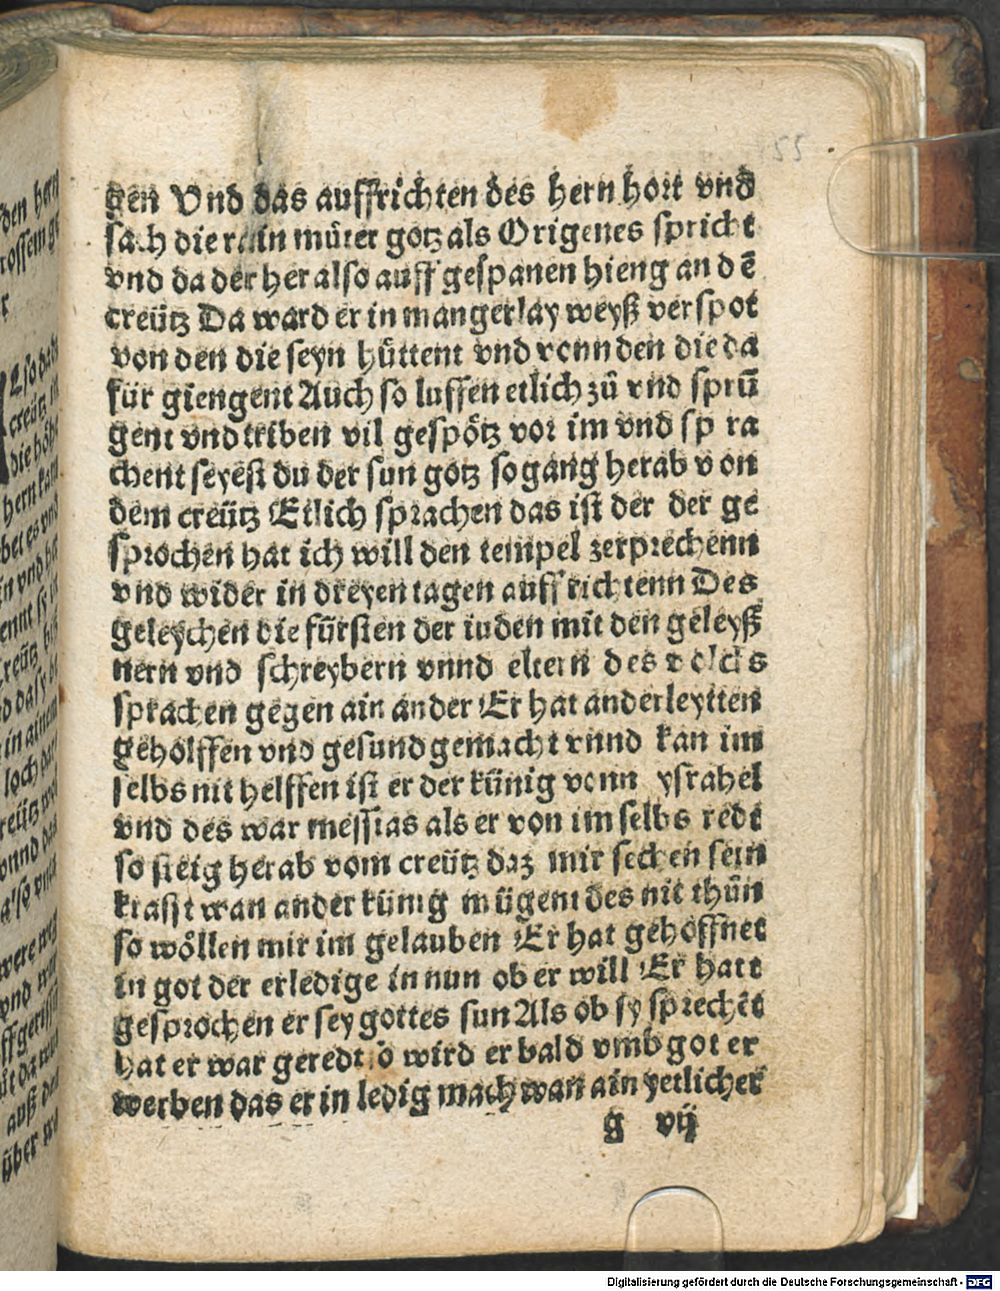 55
gen Vnd das auffrichten des hern hort vnd
sach die rain můter gotz als Origenes spricht
vnd da der her also auff gespanen hieng an dē
creütz Da ward er in mangerlay weyß verspot
von den die seyn hůttent vnd vonn den die da
für giengent Auch so luffen etlich zů vnd sprū
gent vnd triben vil gespötz vor im vnd sp ra
chent seyest du der sun gotz so gang herab von
dem creütz Etlich sprachen das ist der der ge
sprochen hat ich will den tempel zerprechenn
vnd wider in dreyen tagen auff richtenn Des
geleychen die fürsten der iuden mit den geleyß
nern vnd schreybern vnnd eltern des volcks
sprachen gegen ain ander Er hat anderleytten
geholffen vnd gesund gemacht vnnd kan im
selbs nit helffen ist er der künig vonn ysrahel
vnd des war messias als er von im selbs redt
so steig herab vom creütz daz mir sechen sein
krafft wan ander künig mügent des nit thůn
so wöllen mir im gelauben Er hat gehoffnet
in got der erledige in nun ob er will Er hatt
gesprochen er sey gottes sun Als ob sy sprechēt
hat er war geredt so wird er bald vmb got er
werben das er in ledig mach wan ain yetlicher
g vij
Digitalisierung gefördert durch die Deutsche Forschungsgemeinschaft - DFG